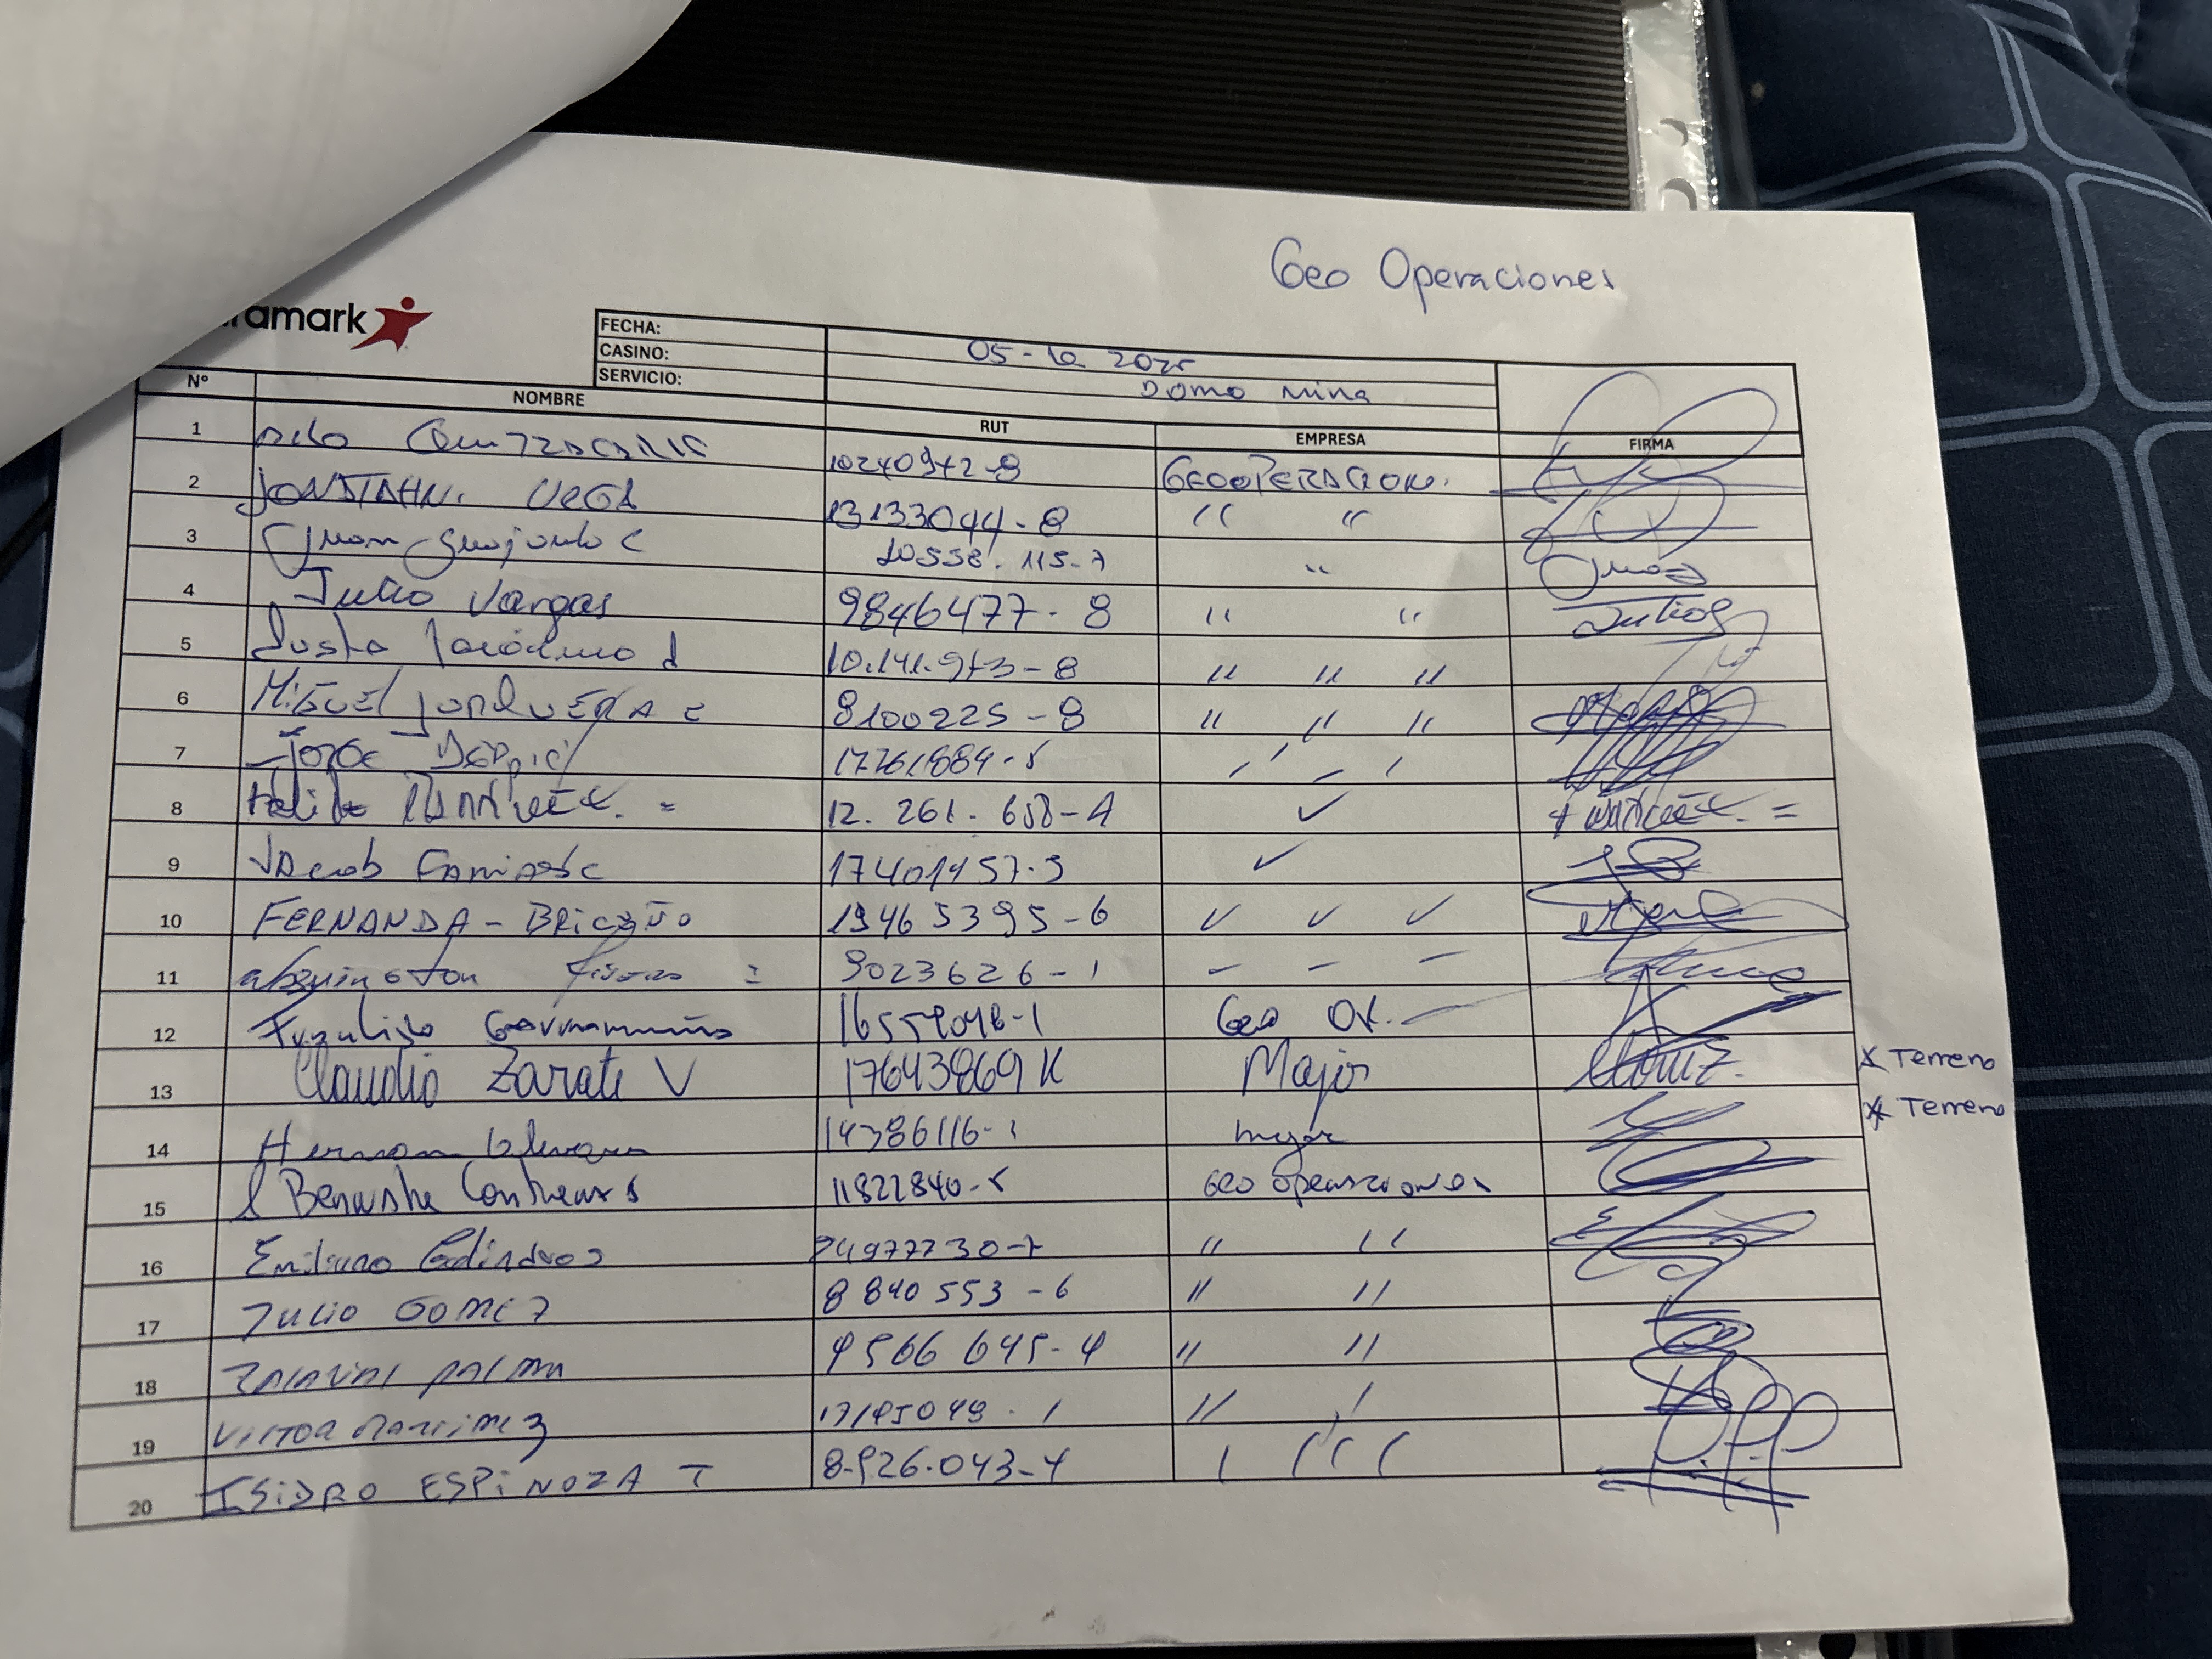 Geo Operaciones
aramark
FECHA: 05-10 2025
CASINO: Domo Mina
SERVICIO:
Nº NOMBRE RUT EMPRESA FIRMA
1 10240942-8 GEOOPERACION.
2 JONATAHN. VEGA 13133044-8 " "
3 Juan Guajardo C 10558.115-7 "
4 Julio Vargas 9846477-8 " " Julio
5 Justo 10.141.973-8 " " "
6 MiGUEl JORQUERA C 8100225-8 " " "
7 JORGE 17761884-5
8 Felipe 12.261.658-4 ✓
9 Jacob 17401457-3 ✓
10 FERNANDA - BRICEÑO 19465395-6 ✓ ✓ ✓
11 9023626-1 - - -
12 16559048-1 Geo OP.
13 Claudio Zarate V 17643869K Major * Terreno
14 Hernan 14386116-1 major * Terreno
15 Contreras 11822840-5 Geo operaciones
16 Emiliano 24977730-7 " "
17 Julio GOMEZ 8840553-6 " "
18 PALMA 9566645-4 " "
19 VICTOR MARTINEZ 17195049-1 "
20 ISiDRO ESPiNOZA T 8.926.043-4